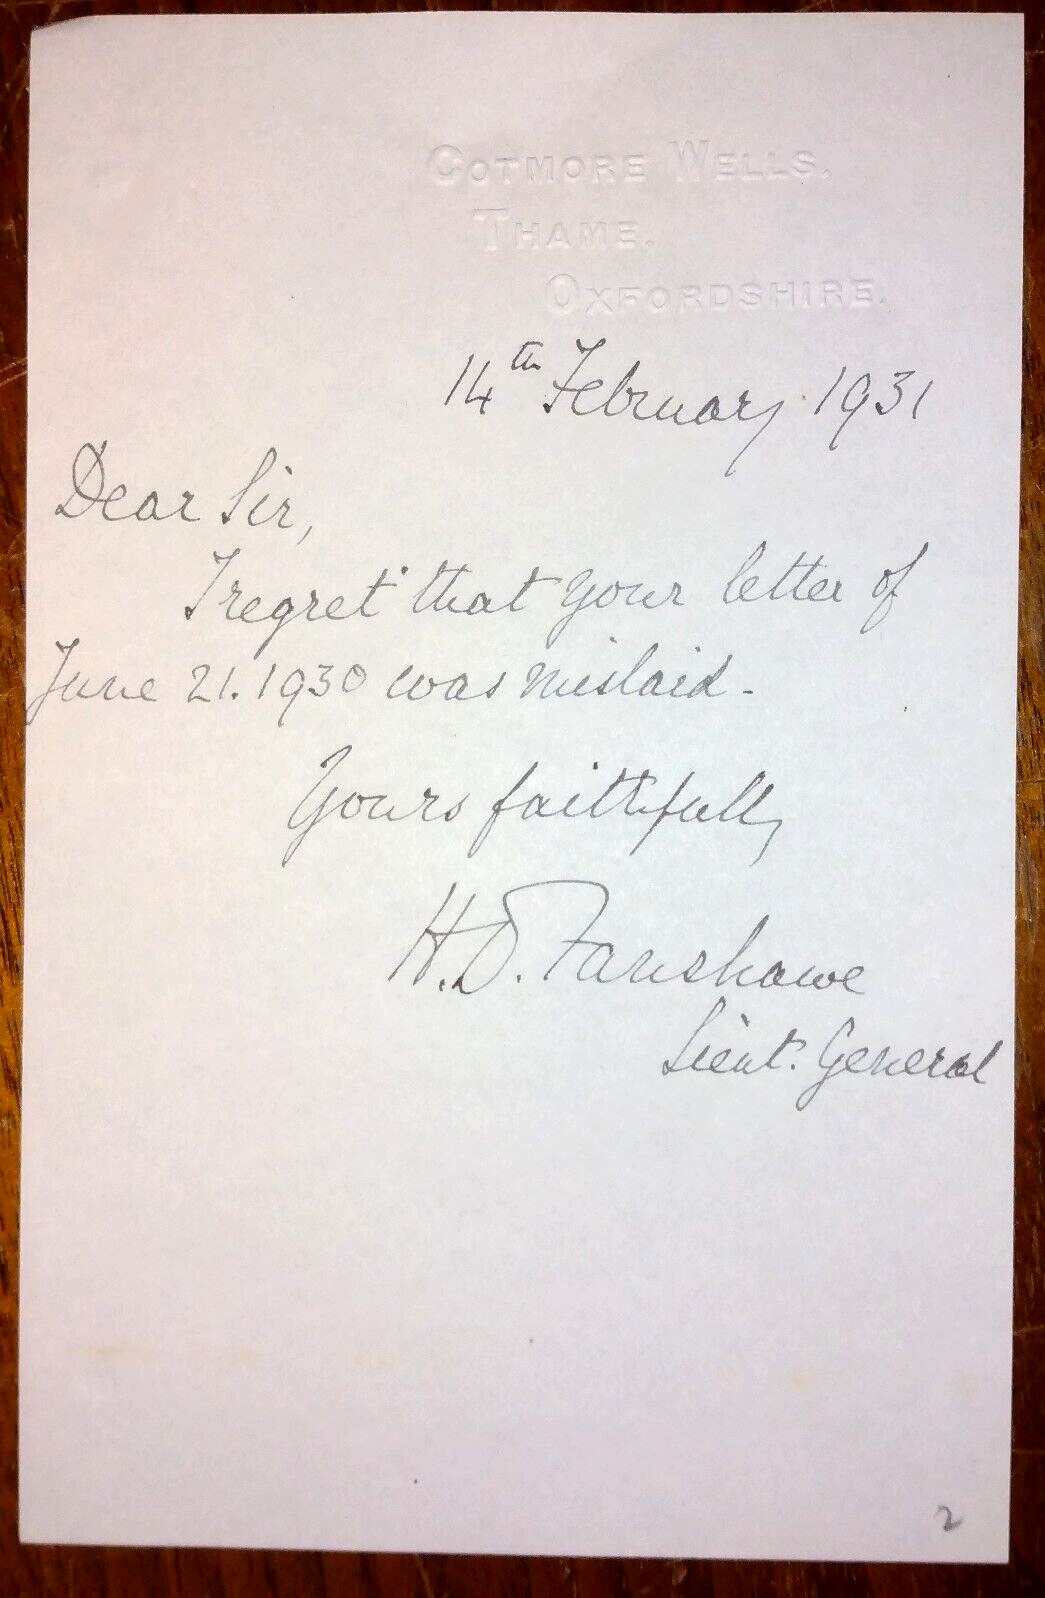 COTMORE WELLS.
THAME.
OXFORDSHIRE.
14th February 1931
Dear Sir,
I regret that your letter of
June 21. 1930 was mislaid.
Yours faithfully
H.D. Fanshawe
Lieut. General
2